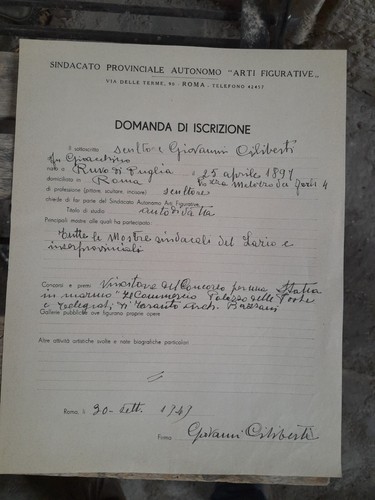 SINDACATO PROVINCIALE AUTONOMO "ARTI FIGURATIVE„
VIA DELLE TERME, 90 - ROMA - TELEFONO 42417
DOMANDA DI ISCRIZIONE
Il sottoscritto scultore Giovanni Ciliberti
fu
nato a Ruvo di Puglia il 25 aprile 1897
domiciliato in Roma
di professione (pittore, scultore, incisore) scultore
chiede di far parte del Sindacato Autonomo Arti Figurative.
Titolo di studio autodidatta
Principali mostre alle quali ha partecipato:
Tutte le Mostre sindacali del Lazio e
interprovinciali
Concorsi e premi: Vincitore del Concorso per una Statua
in marmo "Il Commercio Palazzo delle Poste
e Telegrafi di Taranto Arch. Bazzani
Gallerie pubbliche ove figurano proprie opere
Altre attività artistiche svolte e note biografiche particolari:
Roma, li 30 - Sett. 1947
Firma Giovanni Ciliberti